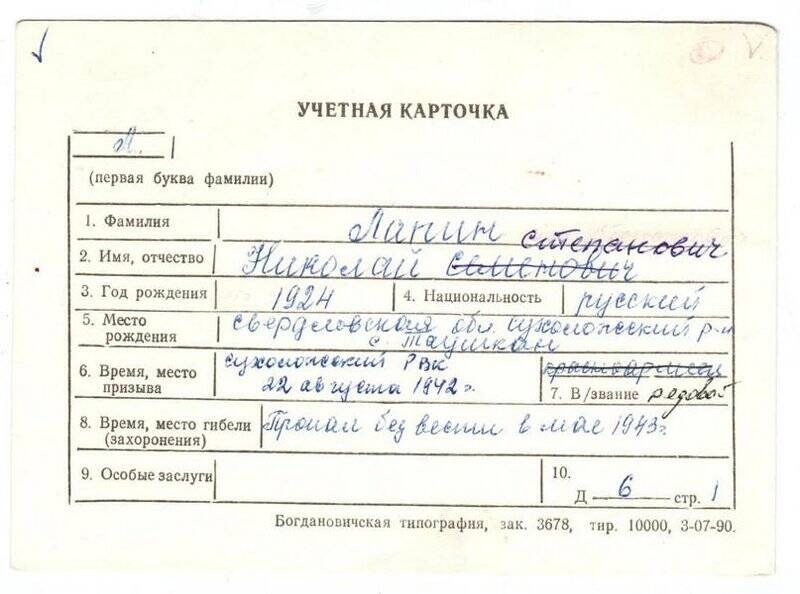 УЧЕТНАЯ КАРТОЧКА
Л.
(первая буква фамилии)
1. Фамилия Лапин
2. Имя, отчество Николай Семенович Степанович
3. Год рождения 1924 4. Национальность русский
5. Место рождения Свердловская обл. Сухоложский р-н
с. Таушкан
6. Время, место призыва Сухоложский РВК
22 августа 1942 г.
красноармеец
7. В/звание рядовой
8. Время, место гибели (захоронения) Пропал без вести в мае 1943 г.
9. Особые заслуги
10.
Д 6 стр. 1
Богдановичская типография, зак. 3678, тир. 10000, 3-07-90.